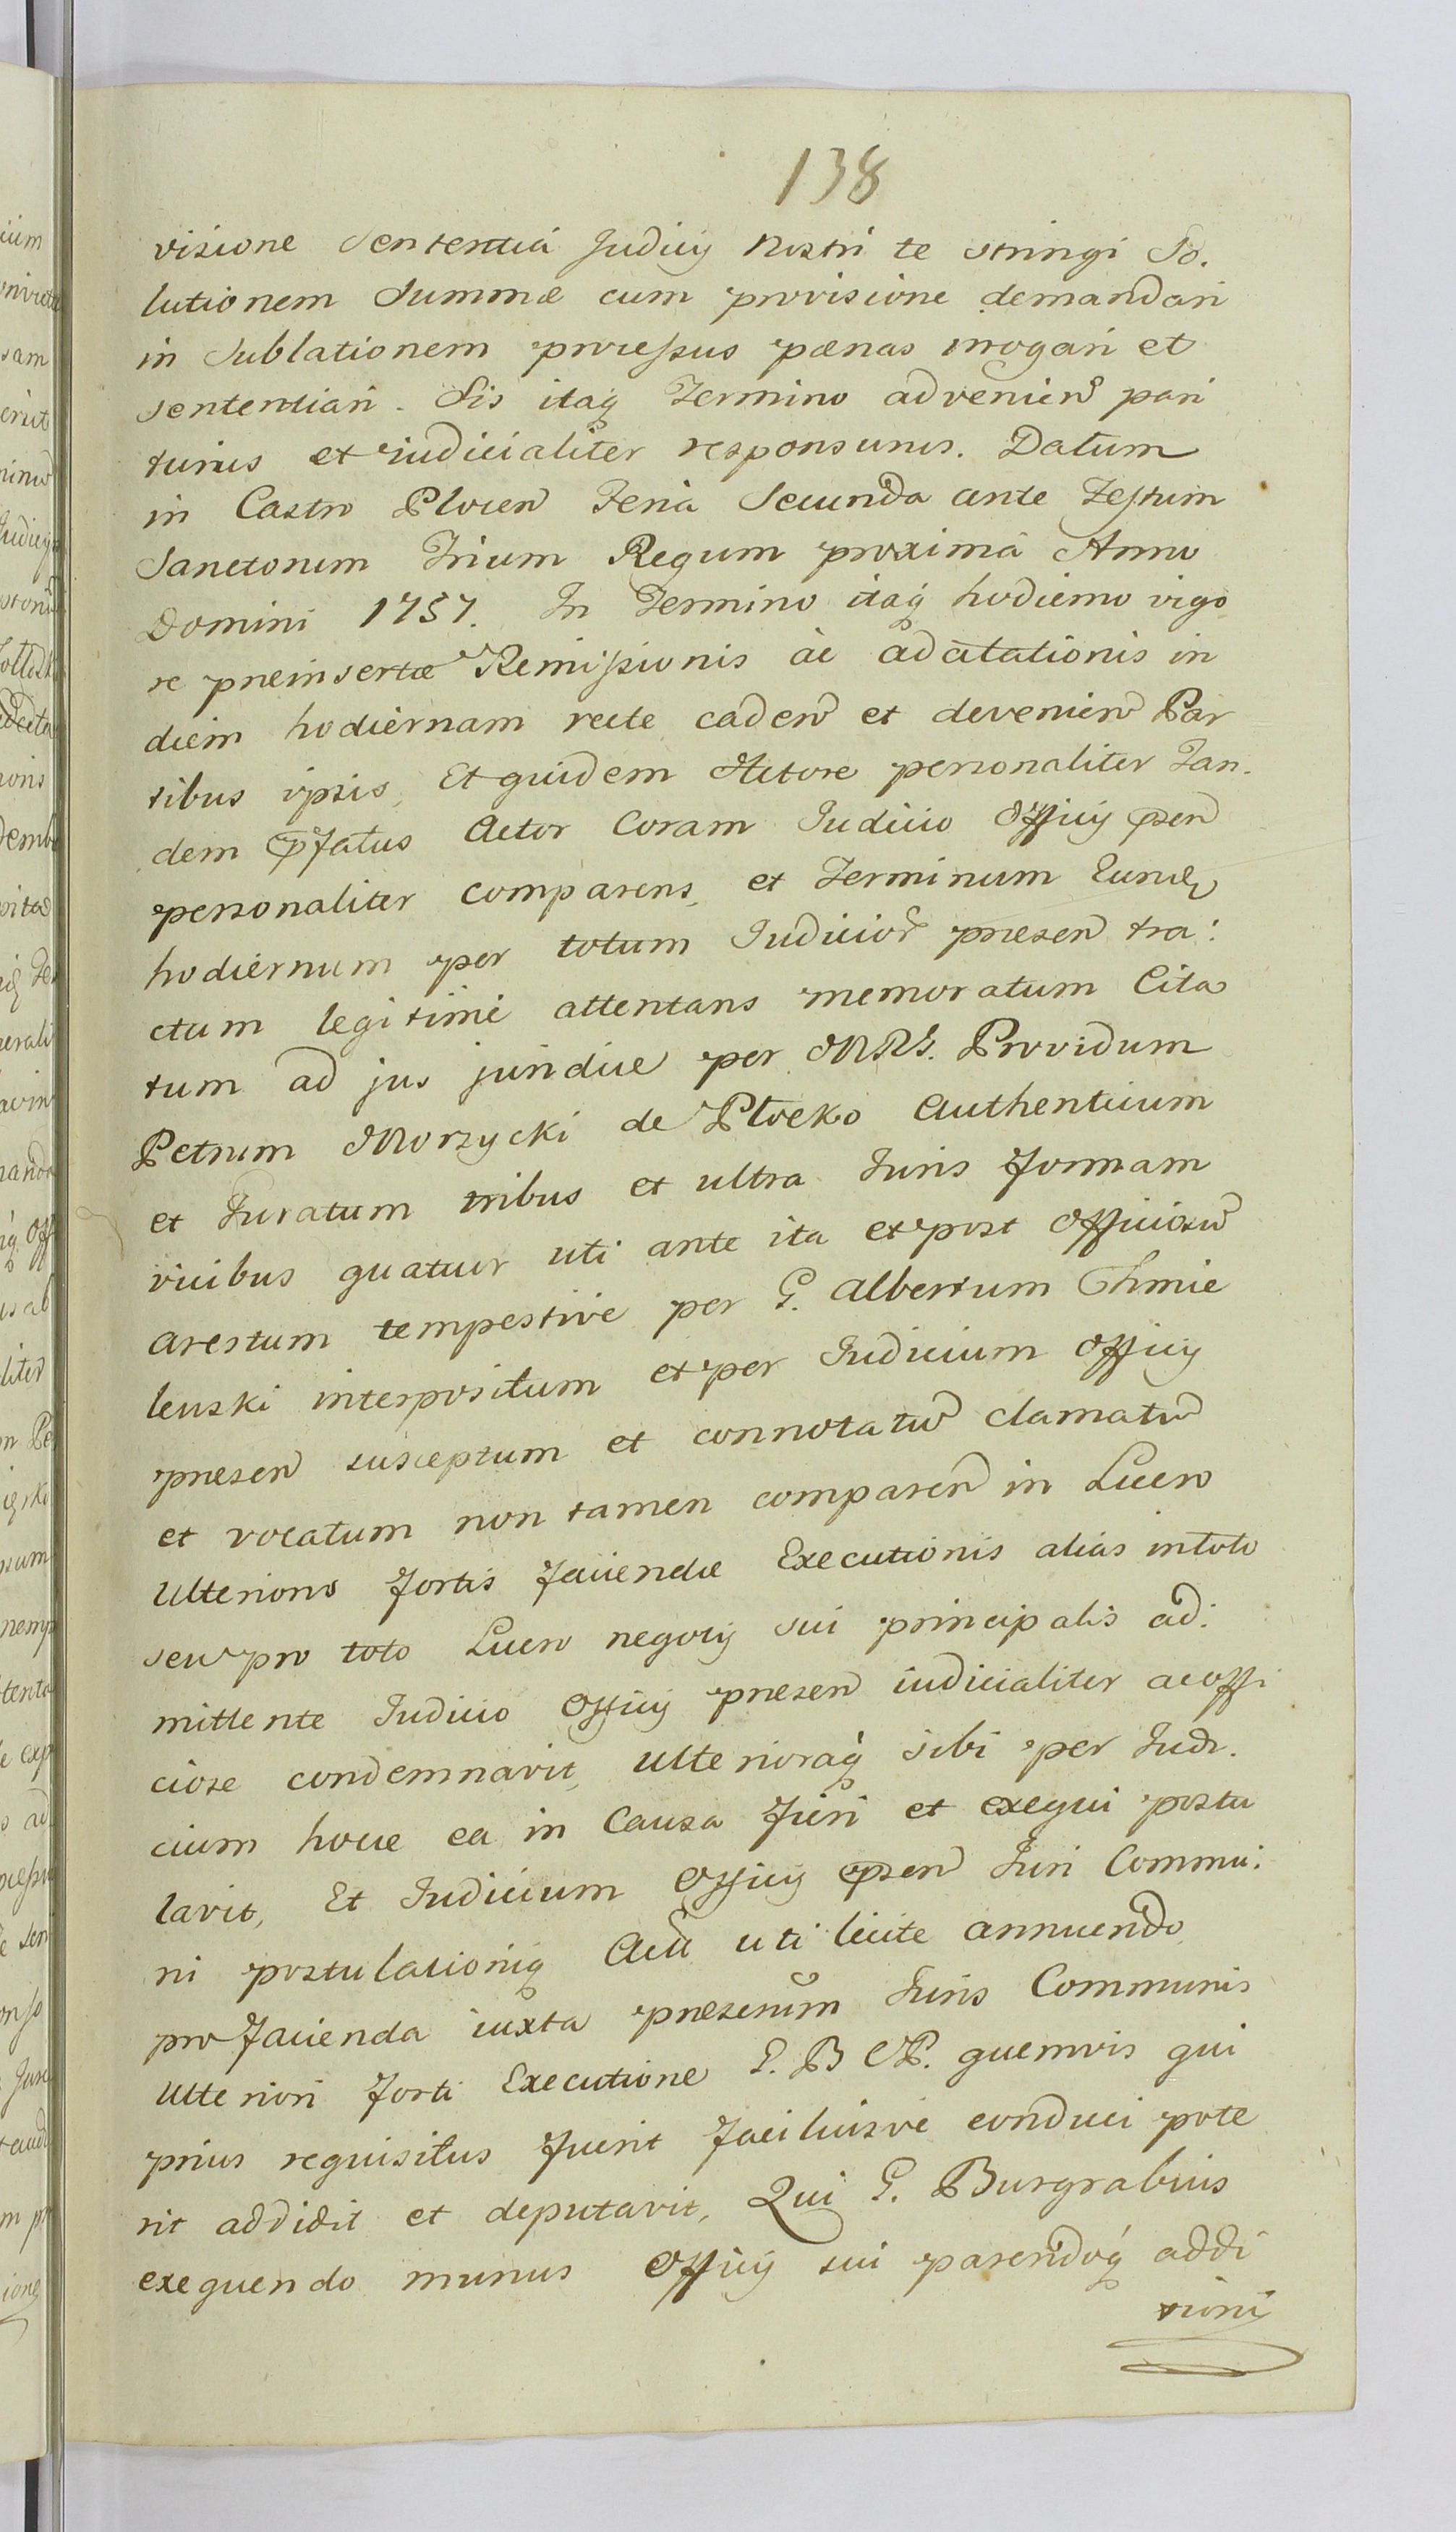 138
visione Sententia Judicij Nostri te stringi So.
lutionem Summæ cum provisione demandari
in Sublationem processus pœnas irrogari et
sententiari. Sis itaq Termino advenien pari
turus et iudicialiter responsurus. Datum
in Castro Plocen Feria Secunda ante Festum
Sanctorum Trium Regum proximâ Anno
Domini 1757. In Termino itaq hodierno vigo
re preinsertæ Remissionis ac adcitationis in
diem hodiernam recte caden et devenien Par
tibus ipsis, Et quidem Actore personaliter Tan.
dem pfatus Actor Coram Judicio Officij psen
personaliter comparens, et Terminum Eund
hodiernum per totum Judicior presen tra:
ctum legitime attentans memoratum Cita
tum ad jus juridice per MRS. Providum
Petrum Morzycki de Plocko Authenticum
et Juratum tribus et ultra Juris formam
vicibus quatuor uti ante ita et post officiosu
arestum tempestive per G. Albertum Chmie
lewski interpositum et per Judicium Officij
presen susceptum et connotatu clamatu
et vocatum non tamen comparen in Lucro
Ulterioris fortis faciendæ Executionis alias in toto
seu pro toto Lucro negotij sui principalis ad:
mittente Judicio Officij presen iudicialiter ac offi
ciose condemnavit, ulterioraq sibi per Judi.
cium hocce ea in Causa fieri et exequi postu
lavit, Et Judicium Officij psen Juri Commu:
ni postulationiq Actt uti licite annuendo
pro facienda iuxta presenum Juris Communis
Ulteriori forti Executione G. B C P. quemvis qui
prius requisitus fuerit faciliusve conduci pote
rit addidit et deputavit, Qui G. Burgrabius
exequendo munus Officij sui parendoq addi
tioni